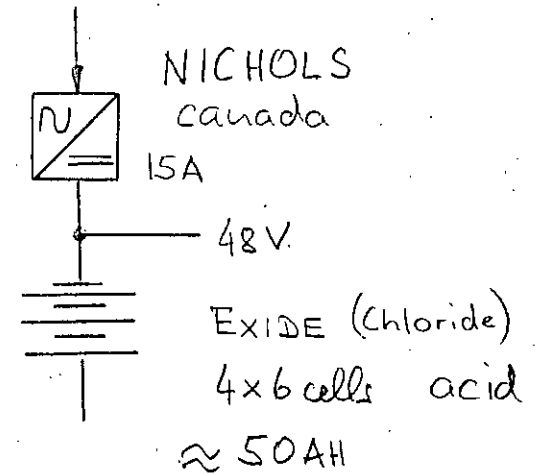 NICHOLS
canada
15A
48V.
EXIDE (Chloride)
4x6 cells acid
≈ 50AH